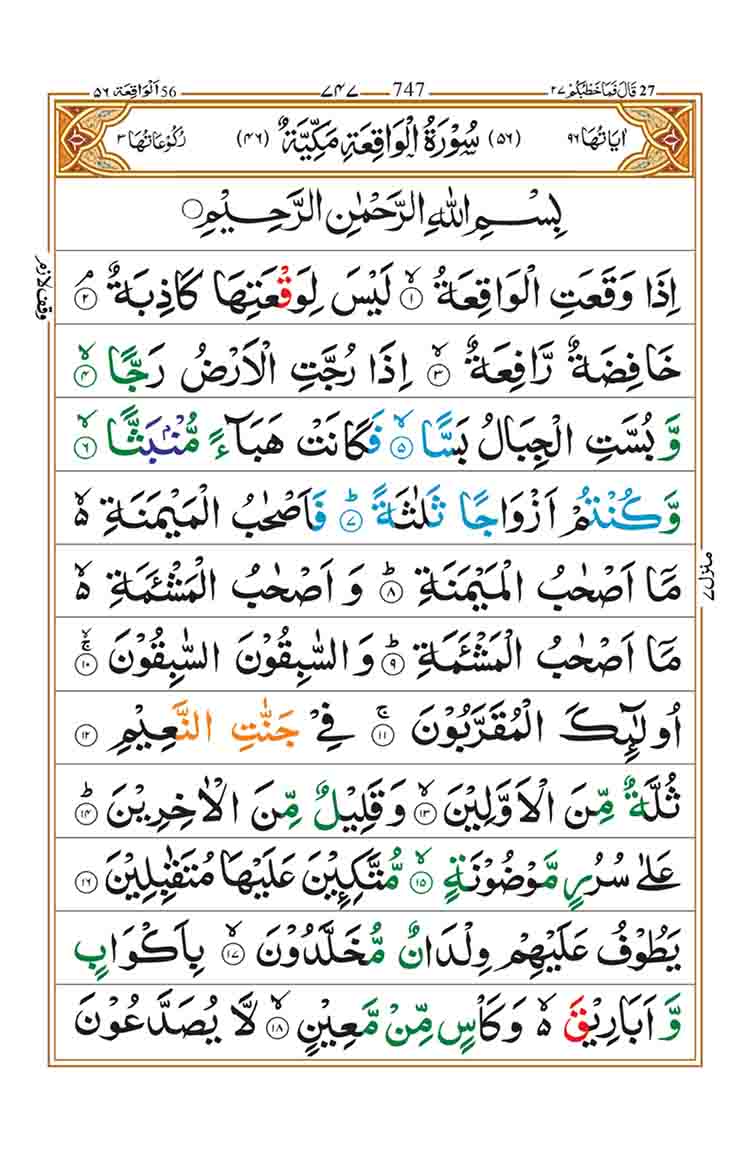 27 قَالَ فَمَا خَطْبُكُمْ ۲۷ 747 ۷۴۷ 56 اَلْوَاقِعَة ۵۶
اٰيَاتُهَا ۹۶ (۵۶) سُوْرَةُ الْوَاقِعَةِ مَكِّيَّةٌ (۴۶) رُكُوْعَاتُهَا ۳
بِسْمِ اللّٰهِ الرَّحْمٰنِ الرَّحِيْمِ ○
اِذَا وَقَعَتِ الْوَاقِعَةُ ۙ‏﴿۱﴾ لَيْسَ لِوَقْعَتِهَا كَاذِبَةٌ ۘ‏﴿۲﴾
وقف لازم
خَافِضَةٌ رَّافِعَةٌ ۙ‏﴿۳﴾ اِذَا رُجَّتِ الْاَرْضُ رَجًّا ۙ‏﴿۴﴾
وَّ بُسَّتِ الْجِبَالُ بَسًّا ۙ‏﴿۵﴾ فَكَانَتْ هَبَآءً مُّنْۢبَثًّا ۙ‏﴿۶﴾
وَّكُنْتُمْ اَزْوَاجًا ثَلٰثَةً ؕ‏﴿۷﴾ فَاَصْحٰبُ الْمَيْمَنَةِ ۙ۬
مَاۤ اَصْحٰبُ الْمَيْمَنَةِ ؕ‏﴿۸﴾ وَ اَصْحٰبُ الْمَشْـَٔمَةِ ۙ۬
منزل ۷
مَاۤ اَصْحٰبُ الْمَشْـَٔمَةِ ؕ‏﴿۹﴾ وَالسّٰبِقُوْنَ السّٰبِقُوْنَ ۚۙ‏﴿۱۰﴾
اُولٰٓئِكَ الْمُقَرَّبُوْنَ ۚ‏﴿۱۱﴾ فِيْ جَنّٰتِ النَّعِيْمِ ‏﴿۱۲﴾
ثُلَّةٌ مِّنَ الْاَوَّلِيْنَ ۙ‏﴿۱۳﴾ وَقَلِيْلٌ مِّنَ الْاٰخِرِيْنَ ؕ‏﴿۱۴﴾
عَلٰى سُرُرٍ مَّوْضُوْنَةٍ ۙ‏﴿۱۵﴾ مُّتَّكِـِٕيْنَ عَلَيْهَا مُتَقٰبِلِيْنَ ‏﴿۱۶﴾
يَطُوْفُ عَلَيْهِمْ وِلْدَانٌ مُّخَلَّدُوْنَ ۙ‏﴿۱۷﴾ بِاَكْوَابٍ
وَّ اَبَارِيْقَ ۙ۬ وَكَاْسٍ مِّنْ مَّعِيْنٍ ۙ‏﴿۱۸﴾ لَّا يُصَدَّعُوْنَ